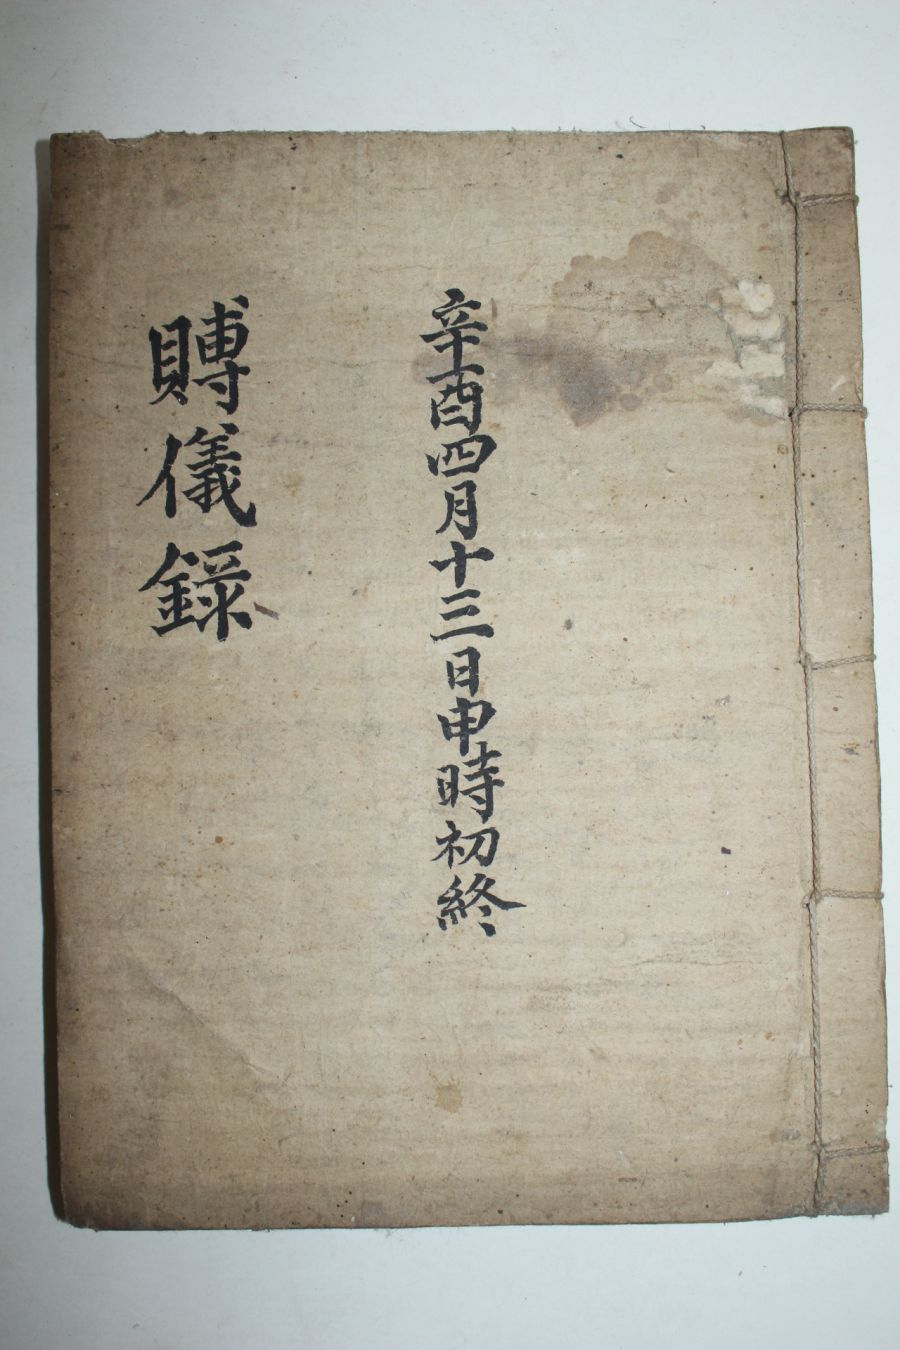 辛酉四月十三日申時初終
賻儀録